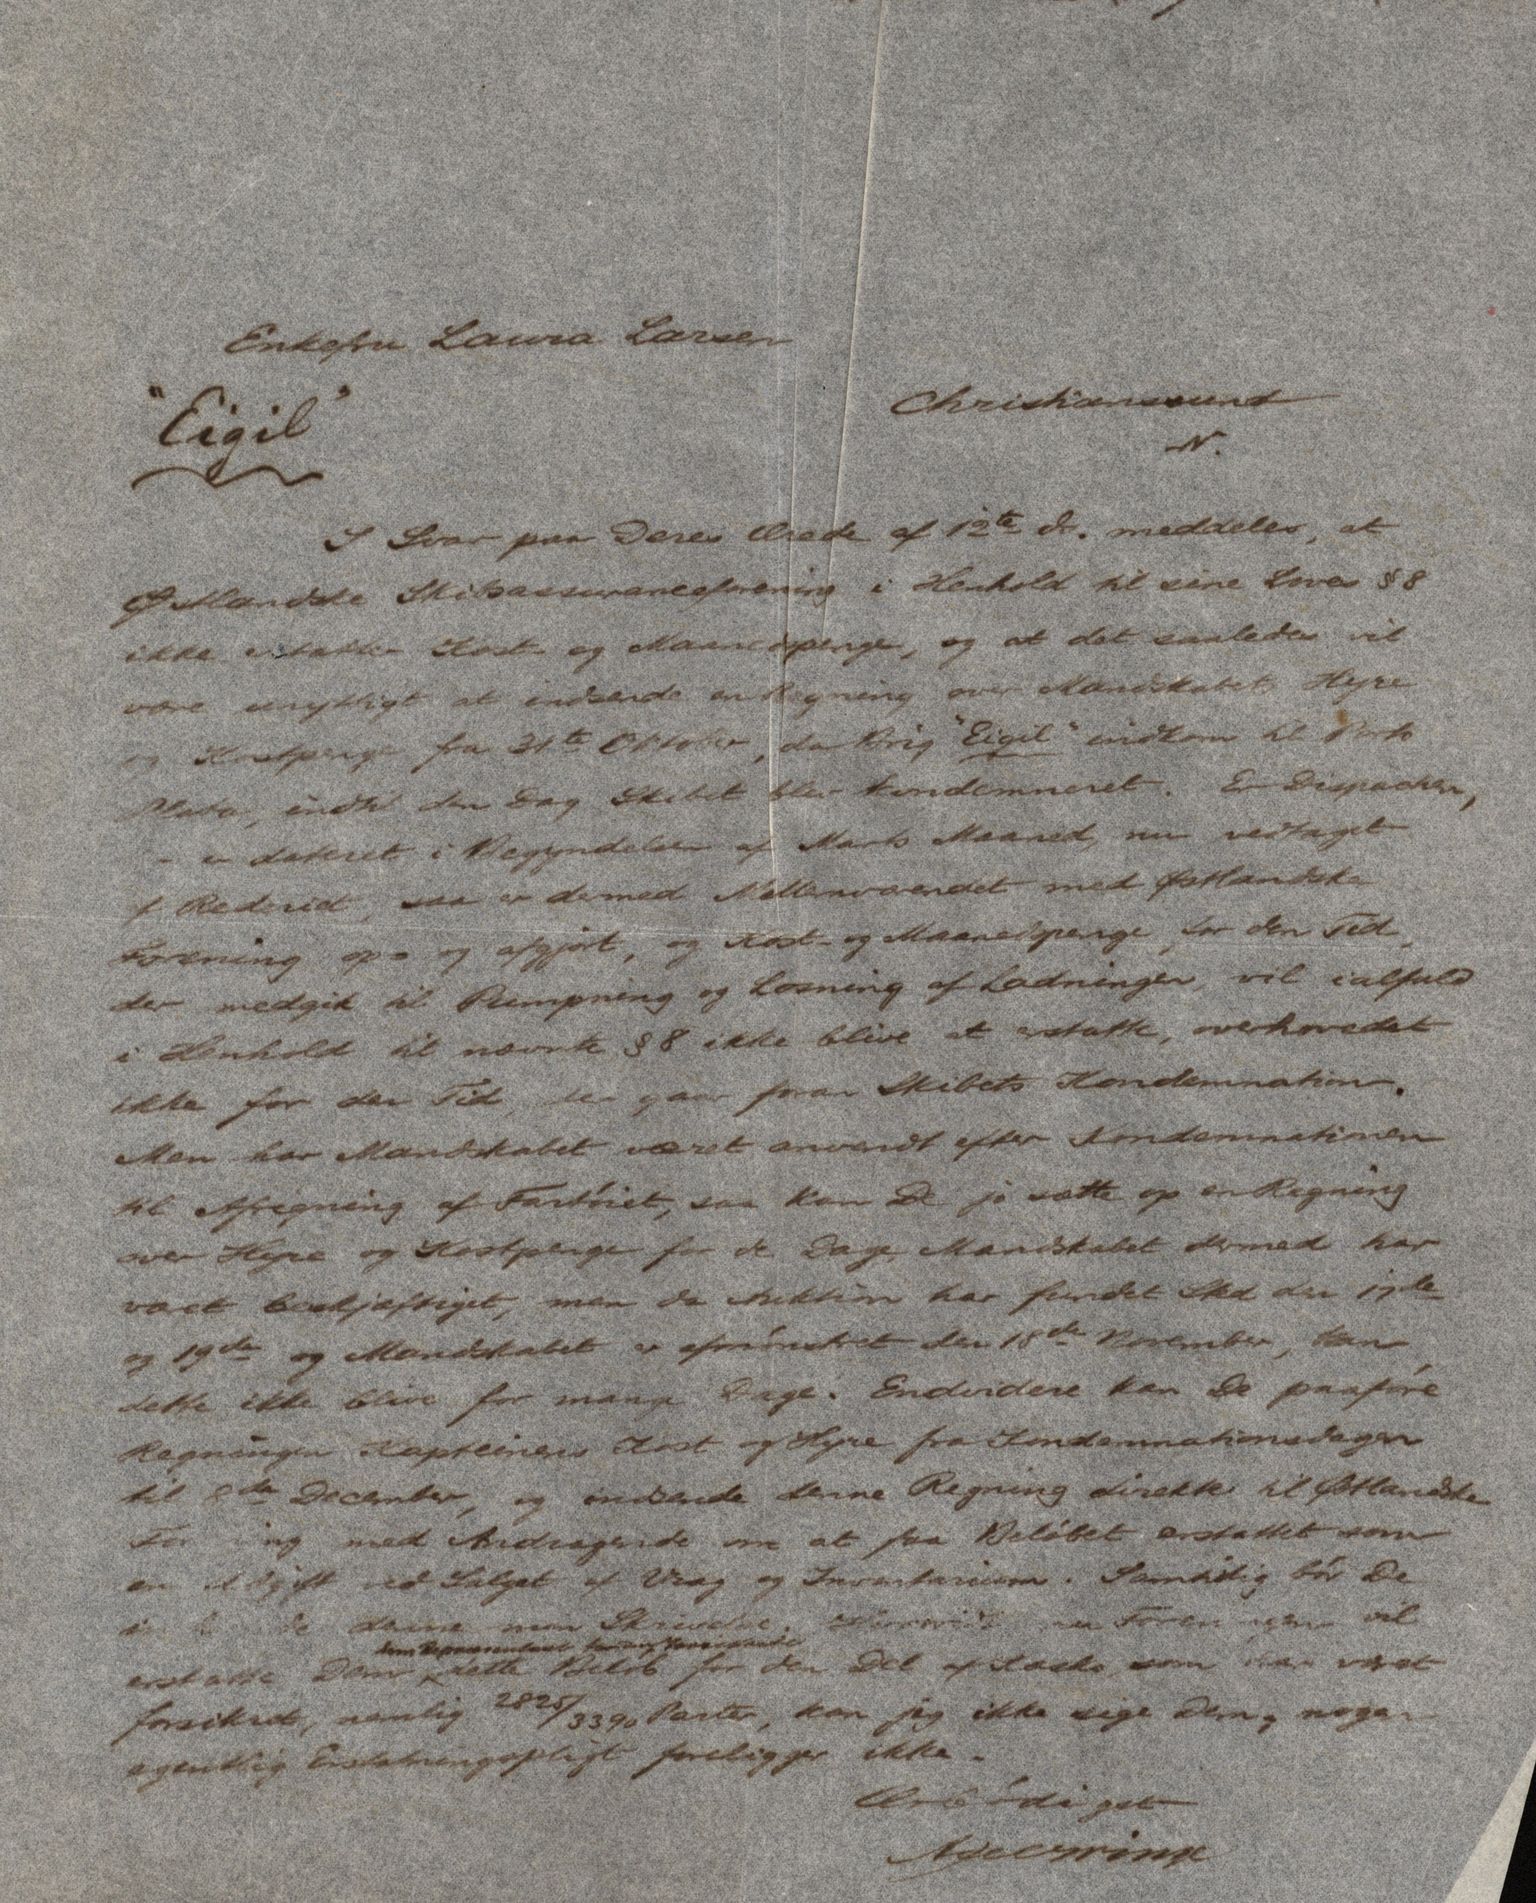 Enkefru Laura Larsen
"Eigil"
Christianssund
N.
I Svar paa Deres Ærede af 12te ds. meddeles, at
Østlandske Skibsassuranceforening i Henhold til sine Loves § 8
ikke erstatter Kost- og Maanedspenge, og at det saaledes vil
være unyttigt at indsende en Regning over Mandskabets Hyre
og Kostpenge fra 31te Oktober, da Brig "Eigil" indkom til Porto
Plata, indtil den Dag Skibet blev kondemneret. Er Dispachen,
- er dateret i Begyndelsen af Marts Maaned, nu vedtaget
af Rederiet, saa er dermed Mellemværendet med Østlandske
Forening op- og afgjort, og Kost- og Maanedspenge for den Tid,
der medgik til Pumpning og Losning af Ladningen, vil ialfald
i Henhold til nævnte § 8 ikke blive at erstatte, overhovedet
ikke for den Tid, der gaar foran Skibets Kondemnation.
Men har Mandskabet været anvendt efter Kondemnationen
til Afrigning af Fartöiet, saa kan De jo sætte op en Regning
over Hyre og Kostpenge for de Dage Mandskabet dermed har
været beskjæftiget, men da Auktion har fundet Sted den 17de
og 19de og Mandskabet er afmönstret den 18de November, kan
dette ikke blive for mange Dage. Endvidere kan De paaföre
Regningen Kapteinens Kost og Hyre fra Kondemnationsdagen
til 8de December, og indsende denne Regning direkte til Østlandske
Forening med Andragende om at faa Belöbet erstattet som
en Udgift ved Salget af Vrag og Inventarium. Samtidig bör De
denne min Skrivelse. Foreningen vil
erstatte Dem dette Belöb for den Del af Kasko, som har været
forsikret, nemlig 2825/3390 Parter, kan jeg ikke sige Dem, nogen
egentlig Erstatningspligt foreligger ikke.
Ærbödigst